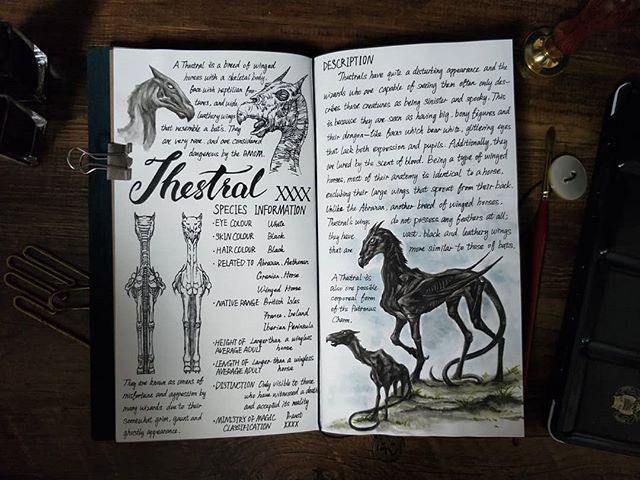 A Thestral is a breed of winged
horses with a skeletal body,
face with reptilian fea-
tures, and wide,
leathery wings
that resemble a bat's. They
are very rare, and are considered
dangerous by the
Thestral XXXX
SPECIES INFORMATION
· EYE COLOUR White
· SKIN COLOUR Black
· HAIR COLOUR Black
· RELATED TO Abraxan, Aethonan
Granian, Horse
Winged Horse
· NATIVE RANGE British Isles
France, Ireland
Iberian Peninsula
· HEIGHT OF AVERAGE ADULT Larger than a wingless horse
· LENGTH OF AVERAGE ADULT Larger than a wingless horse
· DISTINCTION Only visible to those
who have witnessed a death
and accepted its reality
· MINISTRY OF MAGIC CLASSIFICATION Beast XXXX
They are known as omens of
misfortune and aggression by
many wizards due to their
somewhat grim, gaunt and
ghostly appearance.
DESCRIPTION
Thestrals have quite a disturbing appearance and the
wizards who are capable of seeing them often only des-
cribes these creatures as being sinister and spooky. This
is because they are seen as having big, bony figures and
their dragon-like faces which bear white, glittering eyes
that lack both expression and pupils. Additionally, they
are lured by the scent of blood. Being a type of winged
horses, most of their anatomy is identical to a horse,
excluding their large wings that sprout from their back.
Unlike the Abraxan, another breed of winged horses,
Thestral's wings do not possess any feathers at all;
they have vast, black and leathery wings
that are more similar to those of bats.
A Thestral is
also one possible
corporeal form
of the Patronus
Charm.